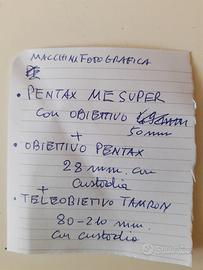 MACCHINA FOTOGRAFICA
• PENTAX ME SUPER
CON OBIETTIVO
50 mm
+
• OBIETTIVO PENTAX
28 mm. con
custodia
+
• TELEOBIETIVO TAMRON
80-210 mm.
con custodia
subito